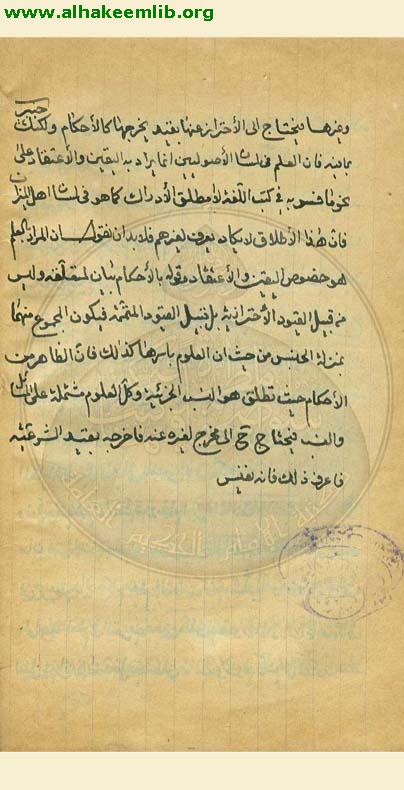 www.alhakeemlib.org
خبير
وغيرها فيحتاج الى الأحتراز عنها بقيد يخرجها كالأحكام ولكنك
بما فيه فان العلم في لسان الأصوليين انما يراد به اليقين والأعتقاد على
نحو ما فسروه في كتب اللغة لا مطلق الأدراك كما هو في لسان اهل الميزان
فان هذا الأطلاق لا يكاد يعرف لغيرهم فلا بد ان نقول ان المراد بالعلم
هو خصوص اليقين والأعتقاد وقوله بالأحكام بيان لمتعلقه وليس
من قبيل القيود الأحترازية بل من قبيل القيود المتممة فيكون المجموع منهما
بمنزلة الجنس من حيث ان العلوم باسرها كذلك فان الظاهر من
الأحكام حيث تطلق هو النسب الجزئية وكل العلوم مشتملة على المسائل
والنسب فيحتاج ح الى مخرج لغيره عنه فاخرجه بقيد الشرعية
فاعرف ذلك فانه نفيس